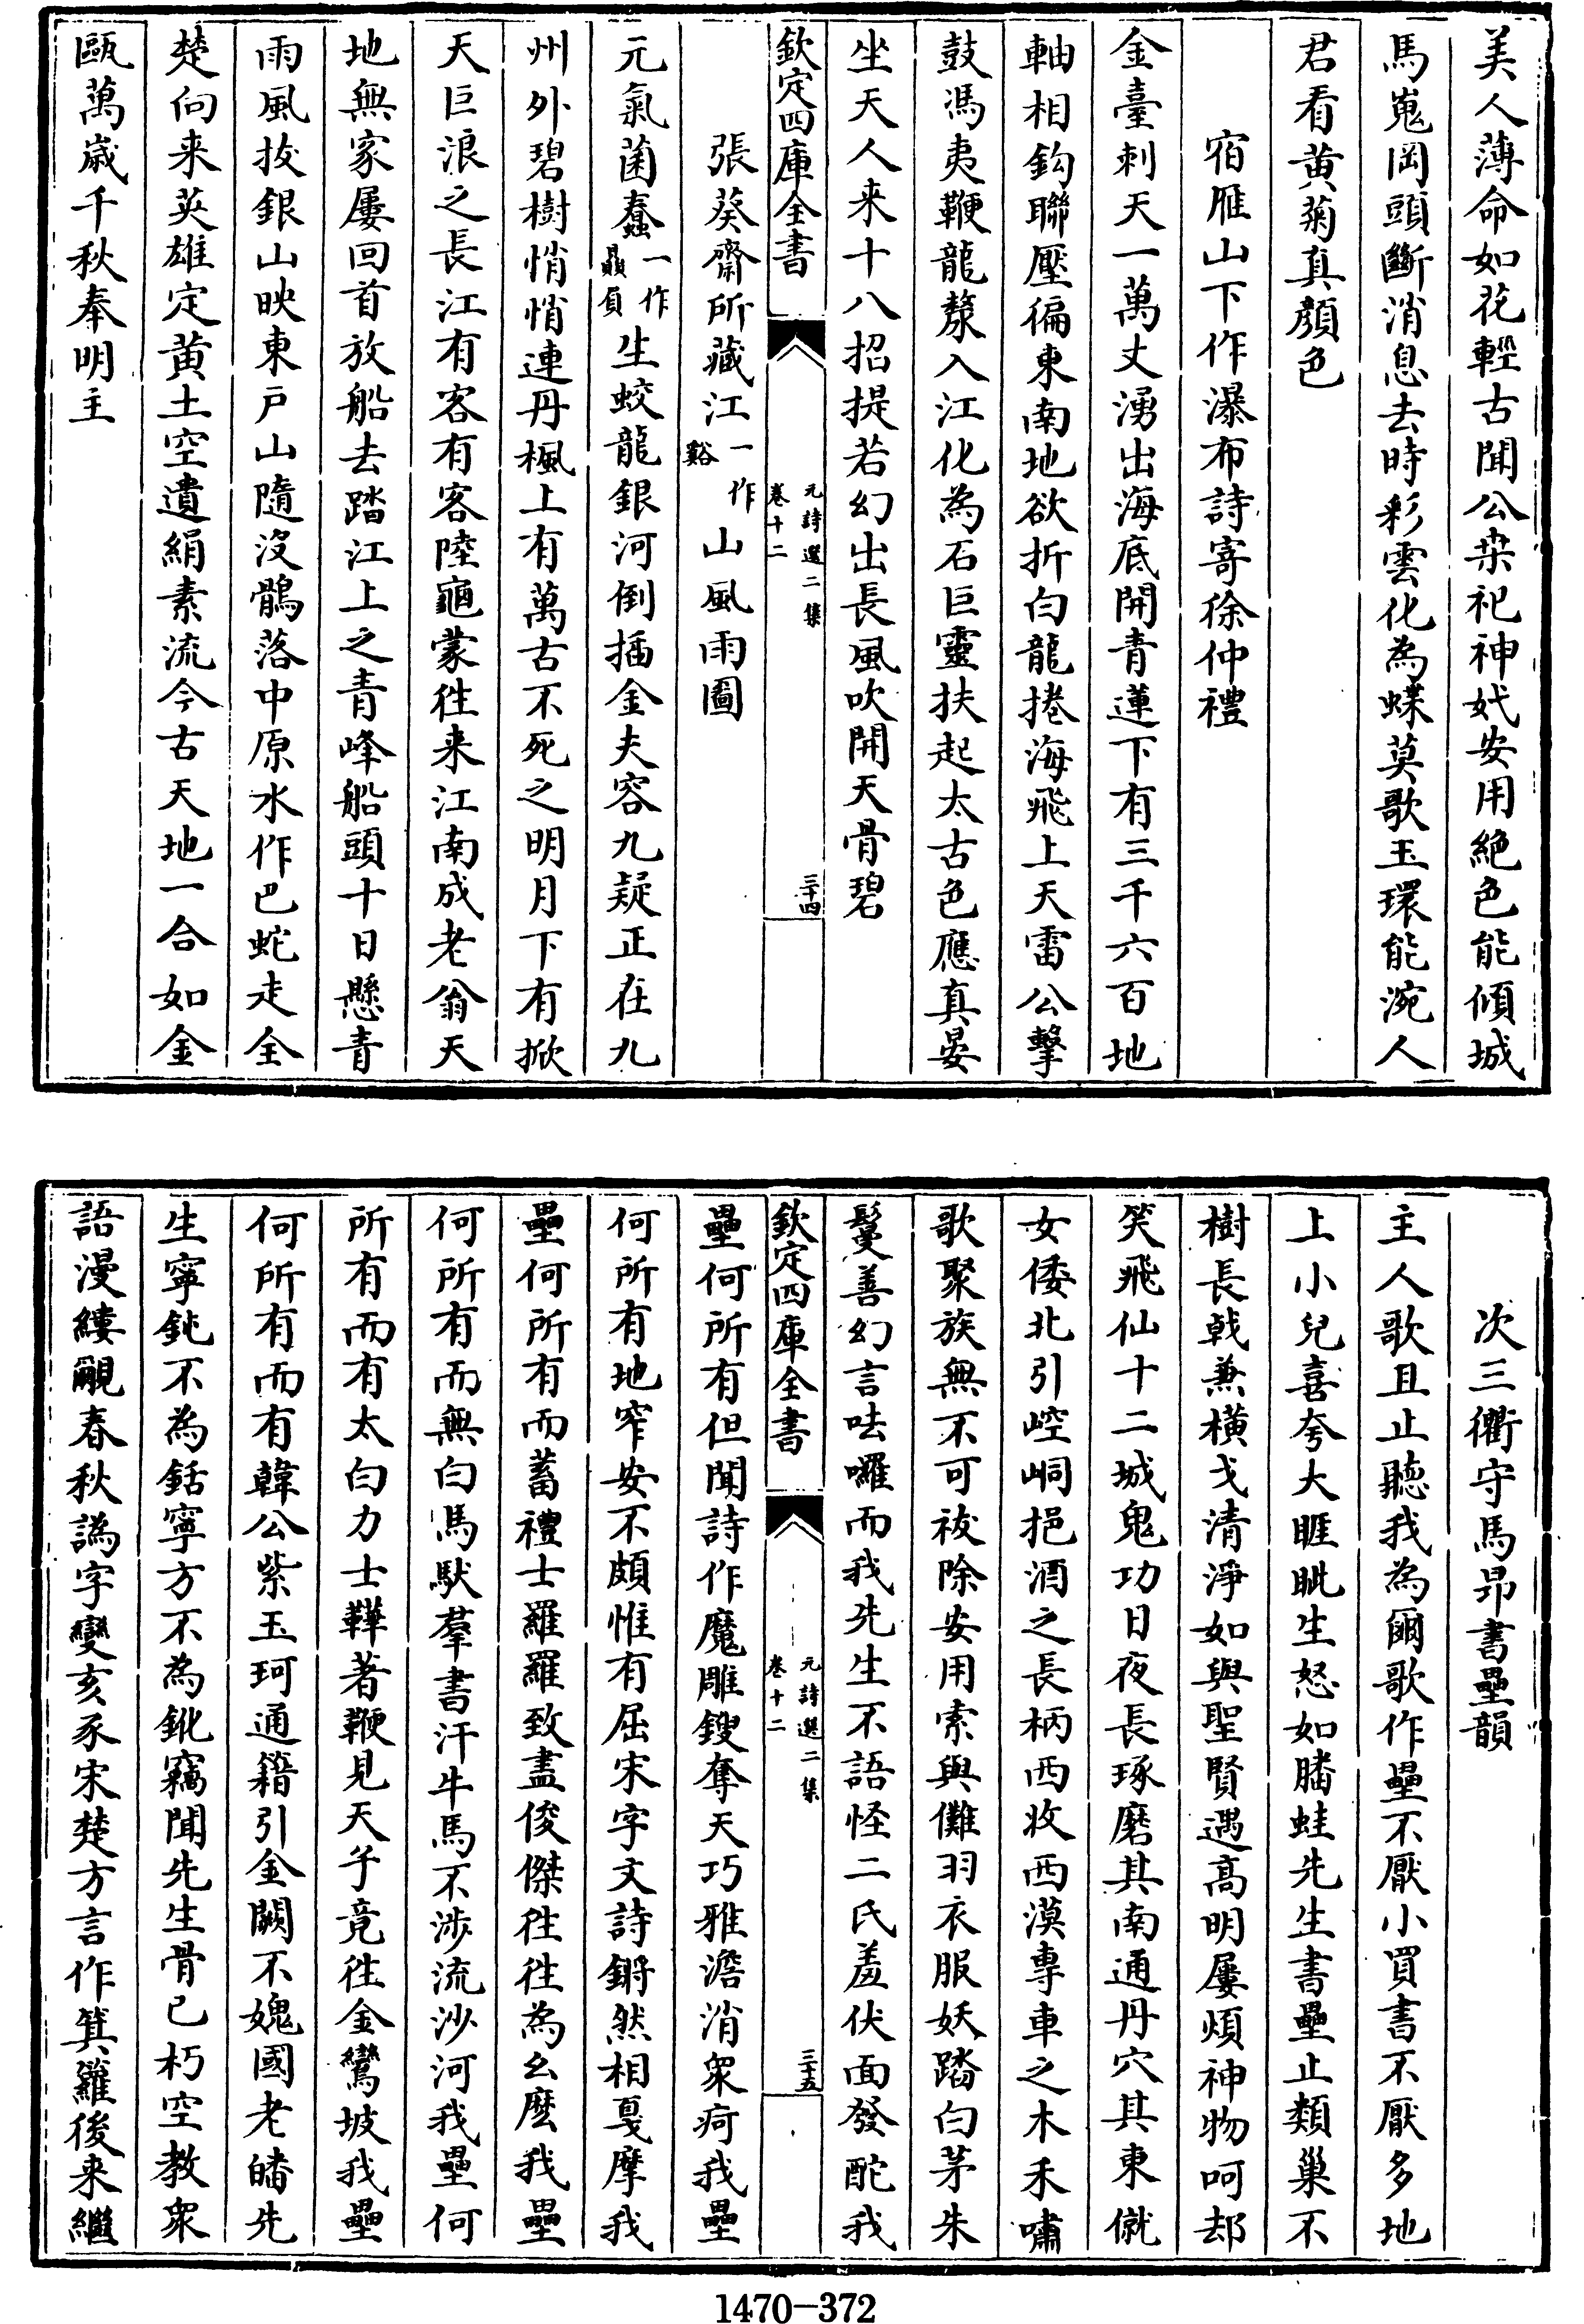 美人薄命如花輕古聞公栾祀神妭安用絶色能傾城
馬嵬岡頭斷消息去時彩雲化為蝶莫歌玉環能涴人
君看黄菊真顔色
宿雁山下作瀑布詩寄徐仲禮
金臺刺天一萬丈湧出海底開青蓮下有三千六百地
軸相鈎聯壓偏東南地欲折白龍捲海飛上天雷公擊
鼓馮夷鞭龍漦入江化為石巨靈扶起太古色應真晏
坐天人来十八招提若幻出長風吹開天骨碧
欽定四庫全書
元詩選二集
卷十二
三十四
張葵齋所藏江一作谿山風雨圖
元氣菌蠢一作贔屓生蛟龍銀河倒插金夫容九疑正在九
州外碧樹悄悄連丹楓上有萬古不死之明月下有掀
天巨浪之長江有客有客陸龜蒙徃来江南成老翁天
地無家屢回首放船去踏江上之青峰船頭十日懸青
雨風拔銀山映東戸山隨沒鶻落中原水作巴蛇走全
楚向来英雄定黄土空遺絹素流今古天地一合如金
甌萬歲千秋奉明主
次三衢守馬昻書壘韻
主人歌且止聽我為爾歌作壘不厭小買書不厭多地
上小兒喜夸大睚眦生怒如膰蛙先生書壘止類巢不
樹長㦸兼横戈清淨如與聖賢遇高明屢煩神物呵却
笑飛仙十二城鬼功日夜長琢磨其南通丹穴其東僦
女倭北引崆峒挹酒之長柄西收西漠專車之木禾嘯
歌聚族無不可祓除安用索與儺羽衣服妖踏白茅朱
鬘善幻言呿囉而我先生不語怪二氏羞伏面發酡我
欽定四庫全書
元詩選二集
卷十二
三十五
壘何所有但聞詩作魔雕鎪奪天巧雅澹消衆疴我壘
何所有地窄安不頗惟有屈宋字文詩鏘然相戛摩我
壘何所有而蓄禮士羅羅致盡俊傑徃徃為幺麽我壘
何所有而無白馬馱羣書汗牛馬不涉流沙河我壘何
所有而有太白力士鞾著鞭見天子竟徃金鸞坡我壘
何所有而有韓公紫玉珂通籍引金闕不媿國老皤先
生寧鈍不為銛寧方不為鈋竊聞先生骨已朽空教衆
語漫縷覼春秋譌字變亥豕宋楚方言作箕籮後来繼
1470—372